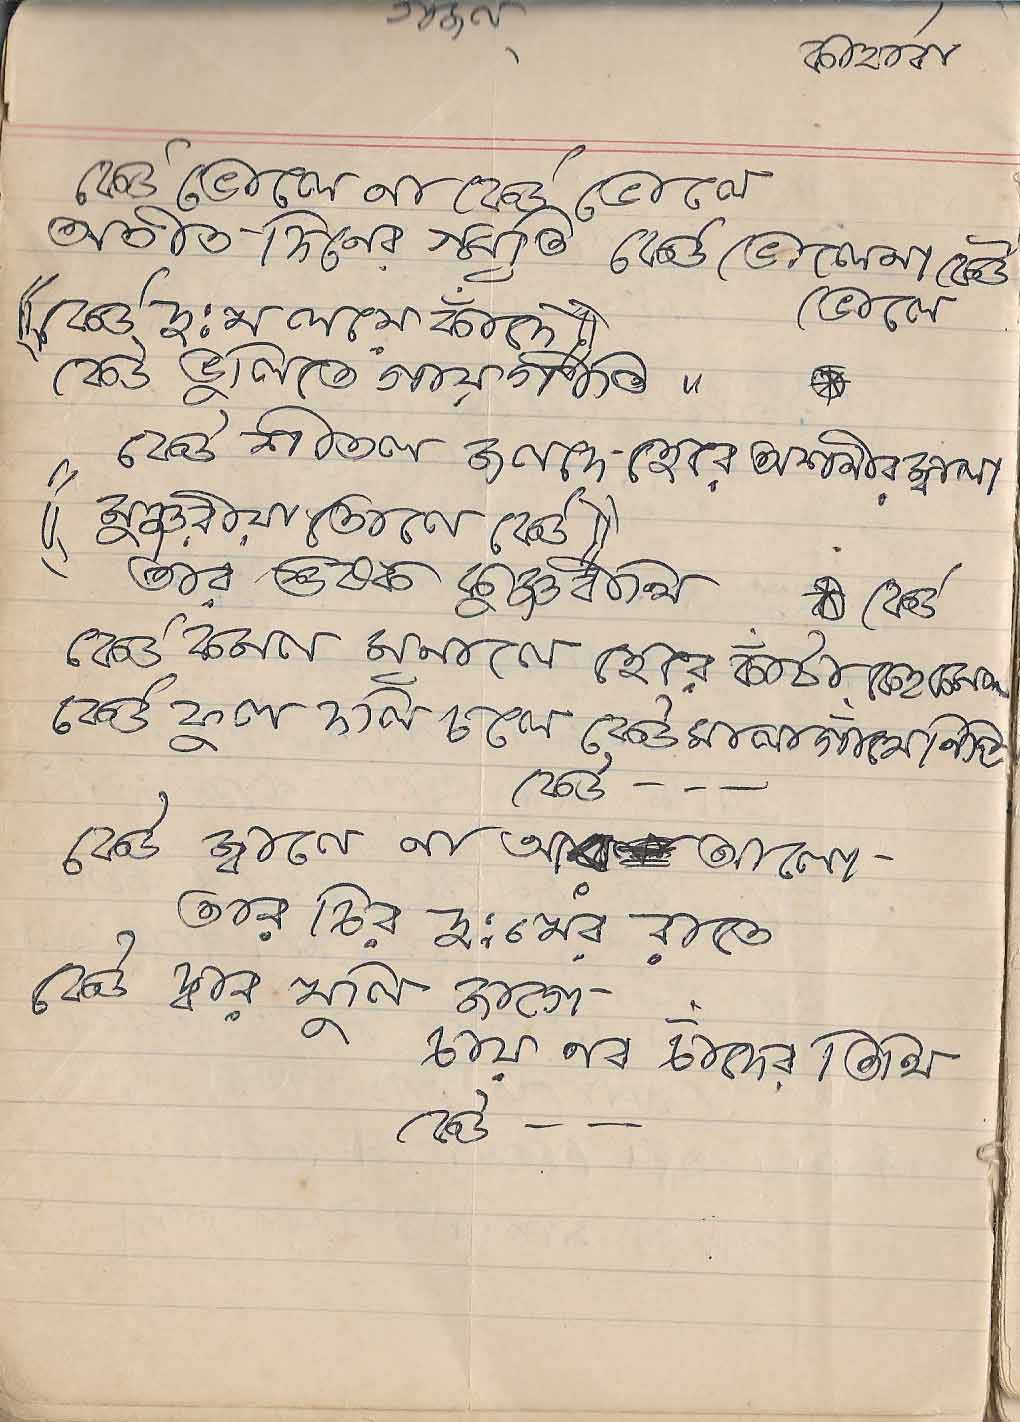 গজল
কাহারবা
কেউ ভোলে না কেউ ভোলে
অতীত দিনের স্মৃতি কেউ ভোলেনা কেউ
ভোলে
((কেউ দুঃখ লয়ে কাঁদে))
কেউ ভুলিতে গায় গীতি "
কেউ শীতল জলদে হেরে অশনীর জ্বালা
((মুঞ্জরীয়া তোলে কেউ))
তার শুষ্ক কুঞ্জবীথি কেউ
কেউ কমল মৃণালে হেরে কাঁটা কেহ কমল
কেউ ফুল দলি চলে কেউ মালা গাঁথে নিতি
কেউ - - -
কেউ জ্বালে না আর আলো-
তার চির দুঃখের রাতে
কেউ দ্বার খুলি জাগে-
চায় নব চাঁদের তিথি
কেউ - -